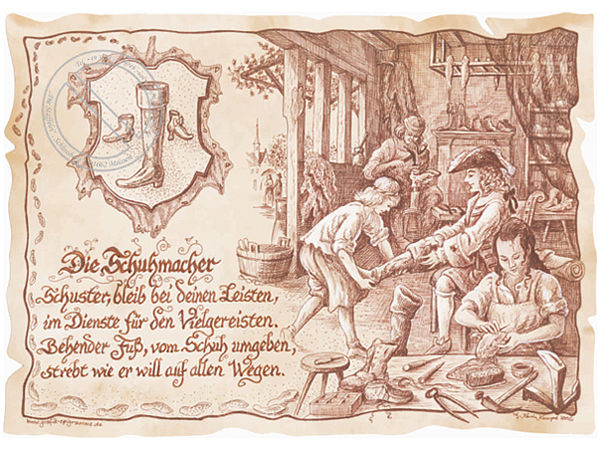 Die Schuhmacher
Schuster, bleib bei deinen Leisten,
im Dienste für den Vielgereisten.
Behender Fuß, vom Schuh umgeben,
strebt wie er will auf allen Wegen.